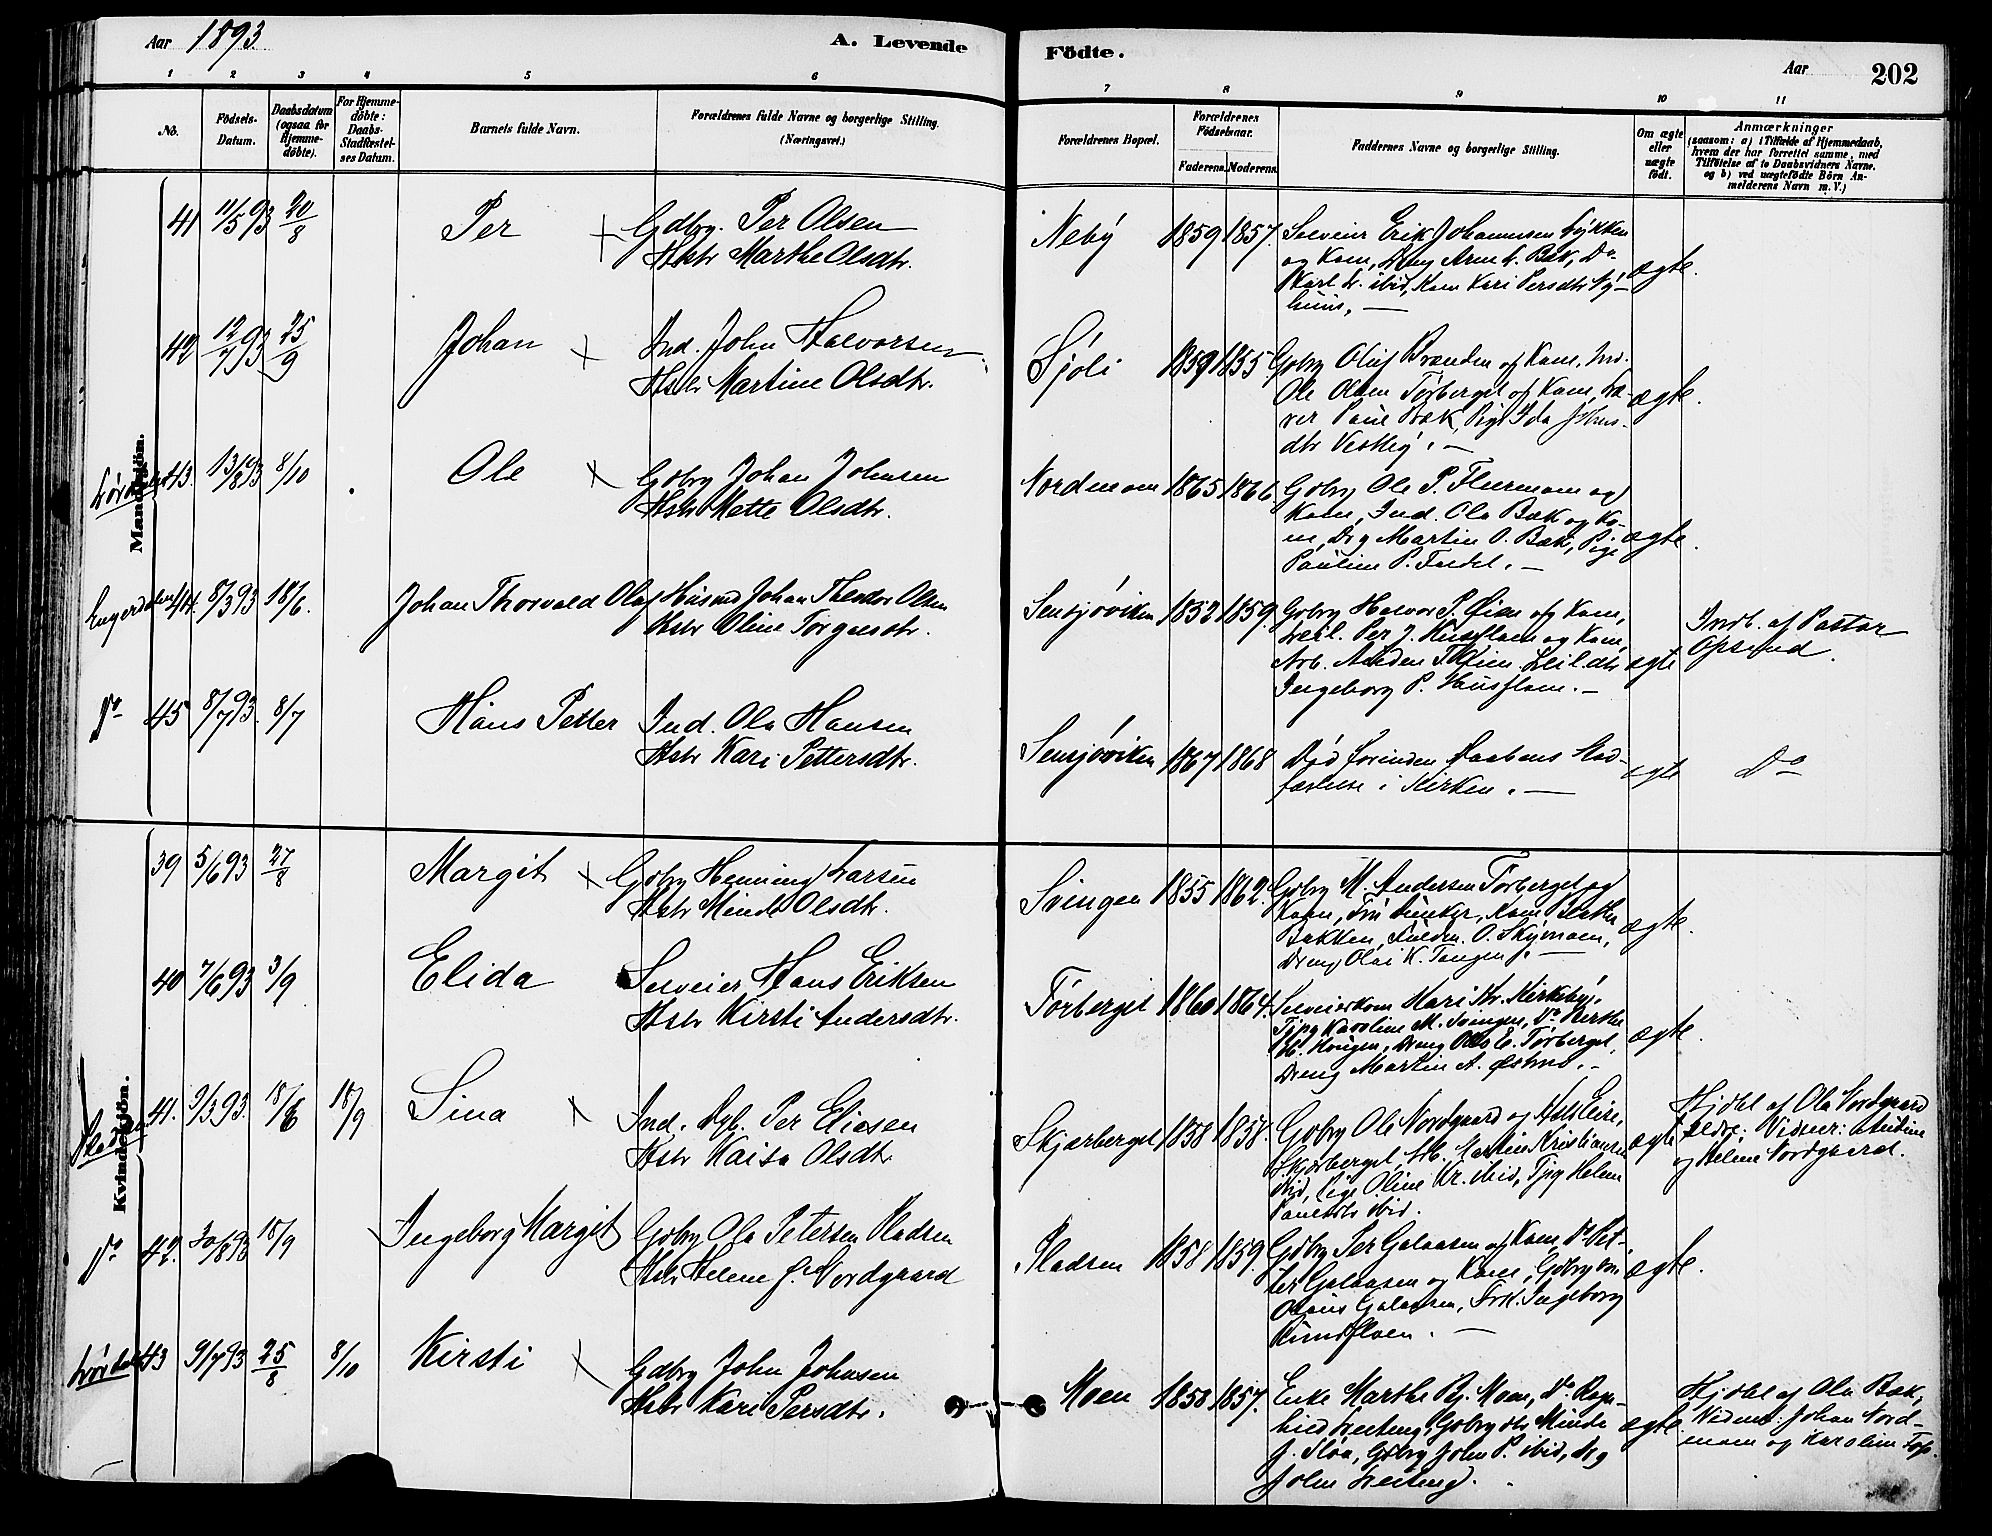 Aar 1893.
A. Levende Födte.
Aar 202
1 2 3 4 5 6 7 8 9 10 11
No.
Födsels-Datum.
Daabsdatum (ogsaa for Hjemme-döbte).
For Hjemme-döbte: Daabs-Stadfæstel-ses Datum.
Barnets fulde Navn.
Forældrenes fulde Navne og borgerlige Stilling. (Næringsvei.)
Forældrenes Bopæl.
Forældrenes Födselsaar.
Faderens. Moderens.
Faddernes Navne og borgerlige Stilling.
Om ægte eller uægte födt.
Anmærkninger
(saasom: a) i Tilfælde af Hjemmedaab,
hvem der har forrettet samme, med
Tilföielse af to Daabsvidners Navne.
og b) ved uægtefödte Börn An-
melderens Navn m. V.)
Mandkjön.
41 11/5 93 20/8 Per Gdbrg. Per Olsen
Hstr Marthe Olsdtr.
Neby 1859 1857. Selveier Erik Johannesen Lykken
og Kone, Dreng Arne Bæk, Do
ibid, Kone Kari Persdtr Ny-
huus. ægte.
42 12/7 93 25/9 Johan Ind. John Halvorsen
Hstr Martine Olsdtr.
Sjöli 1859 1855 Gdbrg Oluf Brænden og Kone, Ind.
Ole Olsen Törberget og Kone, Læ-
rer Paul Bæk, Pige Ida Johns-
dtr Vestby. ægte.
43. 13/8 93 8/10 Ole Gdbrg Johan Johnsen
Hstr Mette Olsdtr.
Nordmoen 1865 1866. Gdbrg Ole P. Flermoen og
Kone, Ind. Ola Bæk og Ko-
ne, Drg Martin O. Bæk, Pige
Pauline P. ægte.
Engerdalen 44. 8/3 93 18/6. Johan Thorvald Olaf Husmd Johan Theodor Olsen
Hstr Oline Torgersdtr.
Sensjøviken 1852 1859. Gdbrg Halvor P. Øien og Kone,
Per J. Husfloen og Kone,
Arb. Øien,
Ingeborg P. Husfloen. ægte
Indb. af Pastor
Opsund.
Do 45 8/7 93. 8/7 Hans Petter Ind. Ola Hansen
Hstr Kari Pettersdtr.
Sensjøviken 1867 1868 Död forinden Daabens Stad-
fæstelse i Kirken. ægte Do
Kvindekjön.
39 5/6 93 27/8 Margit Gdbrg Henning Larsen
Hstr Minda Olsdtr.
Svingen 1855 1862. Gdbrg M. Andersen Törberget og
Kone, Fru Kone
Bakken, O. Skymoen,
Dreng Olai K. Tangen. ægte.
40 7/6 93 3/9 Elida Selveier Hans Eriksen
Hstr Kirsti Andersdtr.
Törberget 1860 1864. Selveierkone Mari Kirkeby,
Tjpg Karoline M. Svingen, Do Berthe
Haugen, Dreng E. Törberget,
Dreng Martin A. ægte.
41. 9/3 93. 18/6 18/9 Sina Ind. Per Eliesen
Hstr Kaisa Olsdtr
Skjærberget 1858 1858. Gdbrg Ole Nordgaard og
Skjærberget, Martin Kristiansen
ibid, Pige Oline Kr. ibid, Tjpg Helene
Paulsdtr ibid. ægte
Hjdbt af Ola Nordgaard
ældre; Vidner:
og Helene Nordgaard.
Do 42. 30/8 93 18/9 Ingeborg Margit Gdbrg Ola Petersen Pladsen
Hstr Helene J. Nordgaard
Pladsen 1858 1859. Gdbrg Per Galaasen og Kone, Do Pet-
ter Galaasen og Kone, Gdbrg
Olaus Galaasen, Frk. Ingeborg
Rundfloen. ægte.
43 9/7 93 25/8 8/10 Kirsti Gdbrg John Johnsen
Hstr Kari Persdtr.
Moen 1858 1857. Enke Marthe Bj. Moen, Do Ragn-
hild Gdbrg dtr Minda
J. Gdbrg John P. ibid, drg
John ægte
Hjdbt af Ola Bæk,
Vidner: Johan Nord-
moen og Karoline